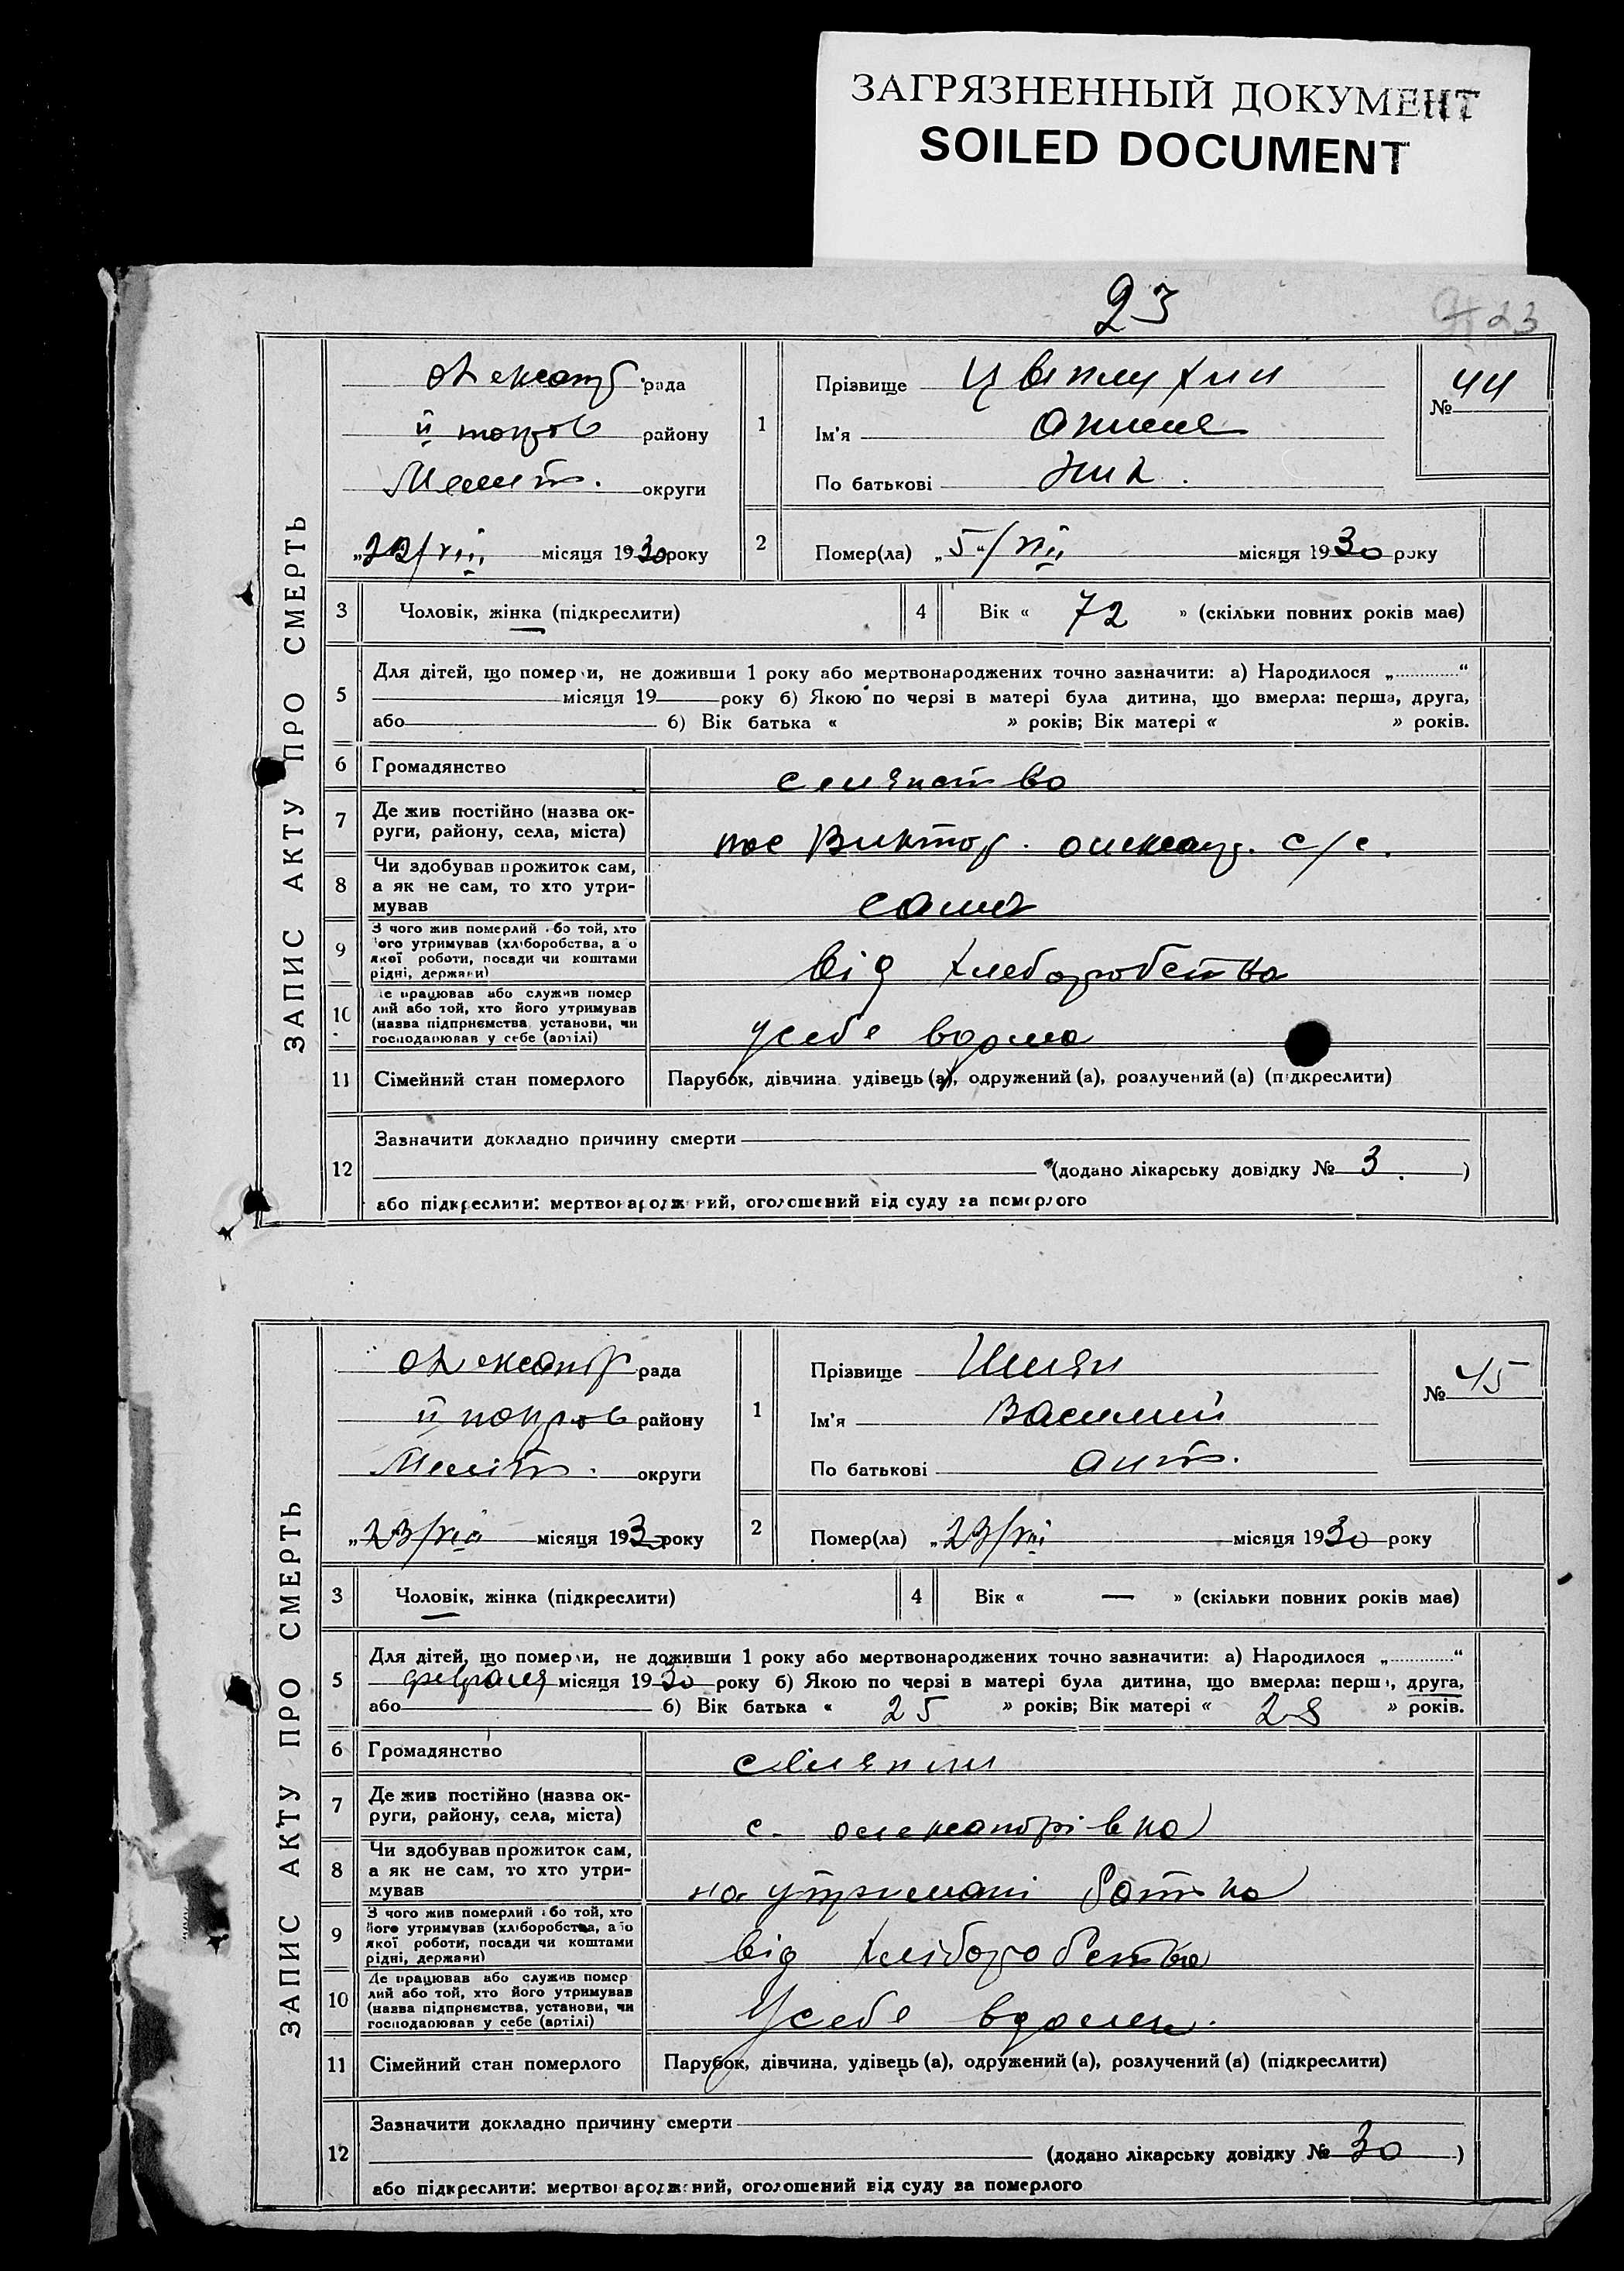 ЗАГРЯЗНЕННЫЙ ДОКУМЕНТ
SOILED DOCUMENT
23
23
ЗАПИС АКТУ ПРО СМЕРТЬ
рада
району
округи
„22/VIII місяця 1930 року
1
Прізвище
Ім'я
По батькові
№ 44
2
Помер(ла) „5"/VIII місяця 1930 року
3 Чоловік, жінка (підкреслити)
4 Вік « 72 » (скільки повних років має)
5
Для дітей, що померли, не доживши 1 року або мертвонароджених точно зазначити: а) Народилося „ “
місяця 19 року б) Якою по черзі в матері була дитина, що вмерла: перша, друга,
або б) Вік батька « » років; Вік матері « » років.
6 Громадянство
7
Де жив постійно (назва ок-
руги, району, села, міста)
с/с.
8
Чи здобував прожиток сам,
а як не сам, то хто утри-
мував
сама
9
З чого жив померлий або той, хто
його утримував (хліборобства, або
якої роботи, посади чи коштами
рідні, держави)
від хлеборобства
10
Де працював або служив помер
лий або той, хто його утримував
(назва підприємства, установи, чи
господарював у себе (артілі)
усебе
11 Сімейний стан померлого
Парубок, дівчина, удівець (а), одружений (а), розлучений (а) (підкреслити)
12
Зазначити докладно причину смерти
(додано лікарську довідку № 3. )
або підкреслити: мертвонароджений, оголошений від суду за померлого
ЗАПИС АКТУ ПРО СМЕРТЬ
рада
району
Меліт. округи
„23/VIII місяця 1930 року
1
Прізвище Шиян
Ім'я Василий
По батькові Ант.
№ 45
2
Помер(ла) „23/VIII місяця 1930 року
3 Чоловік, жінка (підкреслити)
4 Вік « — » (скільки повних років має)
5
Для дітей, що померли, не доживши 1 року або мертвонароджених точно зазначити: а) Народилося „ “
февраля місяця 1930 року б) Якою по черзі в матері була дитина, що вмерла: перша, друга,
або б) Вік батька « 25 » років; Вік матері « 28 » років.
6 Громадянство
7
Де жив постійно (назва ок-
руги, району, села, міста)
с. олександрівка
8
Чи здобував прожиток сам,
а як не сам, то хто утри-
мував
на утримані батька
9
З чого жив померлий або той, хто
його утримував (хліборобства, або
якої роботи, посади чи коштами
рідні, держави)
від хліборобства
10
Де працював або служив помер
лий або той, хто його утримував
(назва підприємства, установи, чи
господарював у себе (артілі)
Усебе
11 Сімейний стан померлого
Парубок, дівчина, удівець (а), одружений (а), розлучений (а) (підкреслити)
12
Зазначити докладно причину смерти
(додано лікарську довідку № 30 )
або підкреслити: мертвонароджений, оголошений від суду за померлого